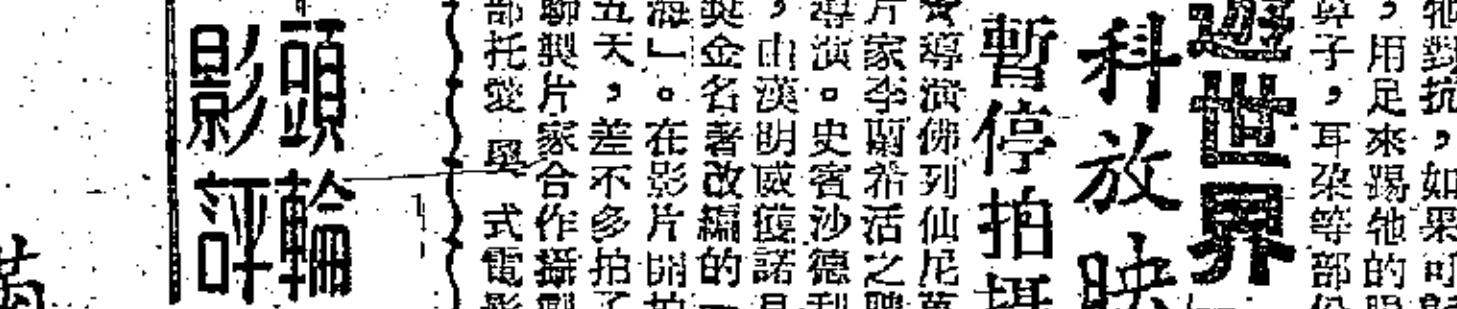 牠對抗，如果可
，用足來踢牠的眼
鼻子，耳朶等部份
遊世界
科放映
暫停拍攝
導演佛列仙尼
片家李蘭希活之聘
導演。史賓沙德利
，由漢明威獲諾貝
奬金名著改編的「
海」。在影片開拍
五天，差不多拍了
聯製片家合作攝製
部托愛 式電影
頭輪
影評